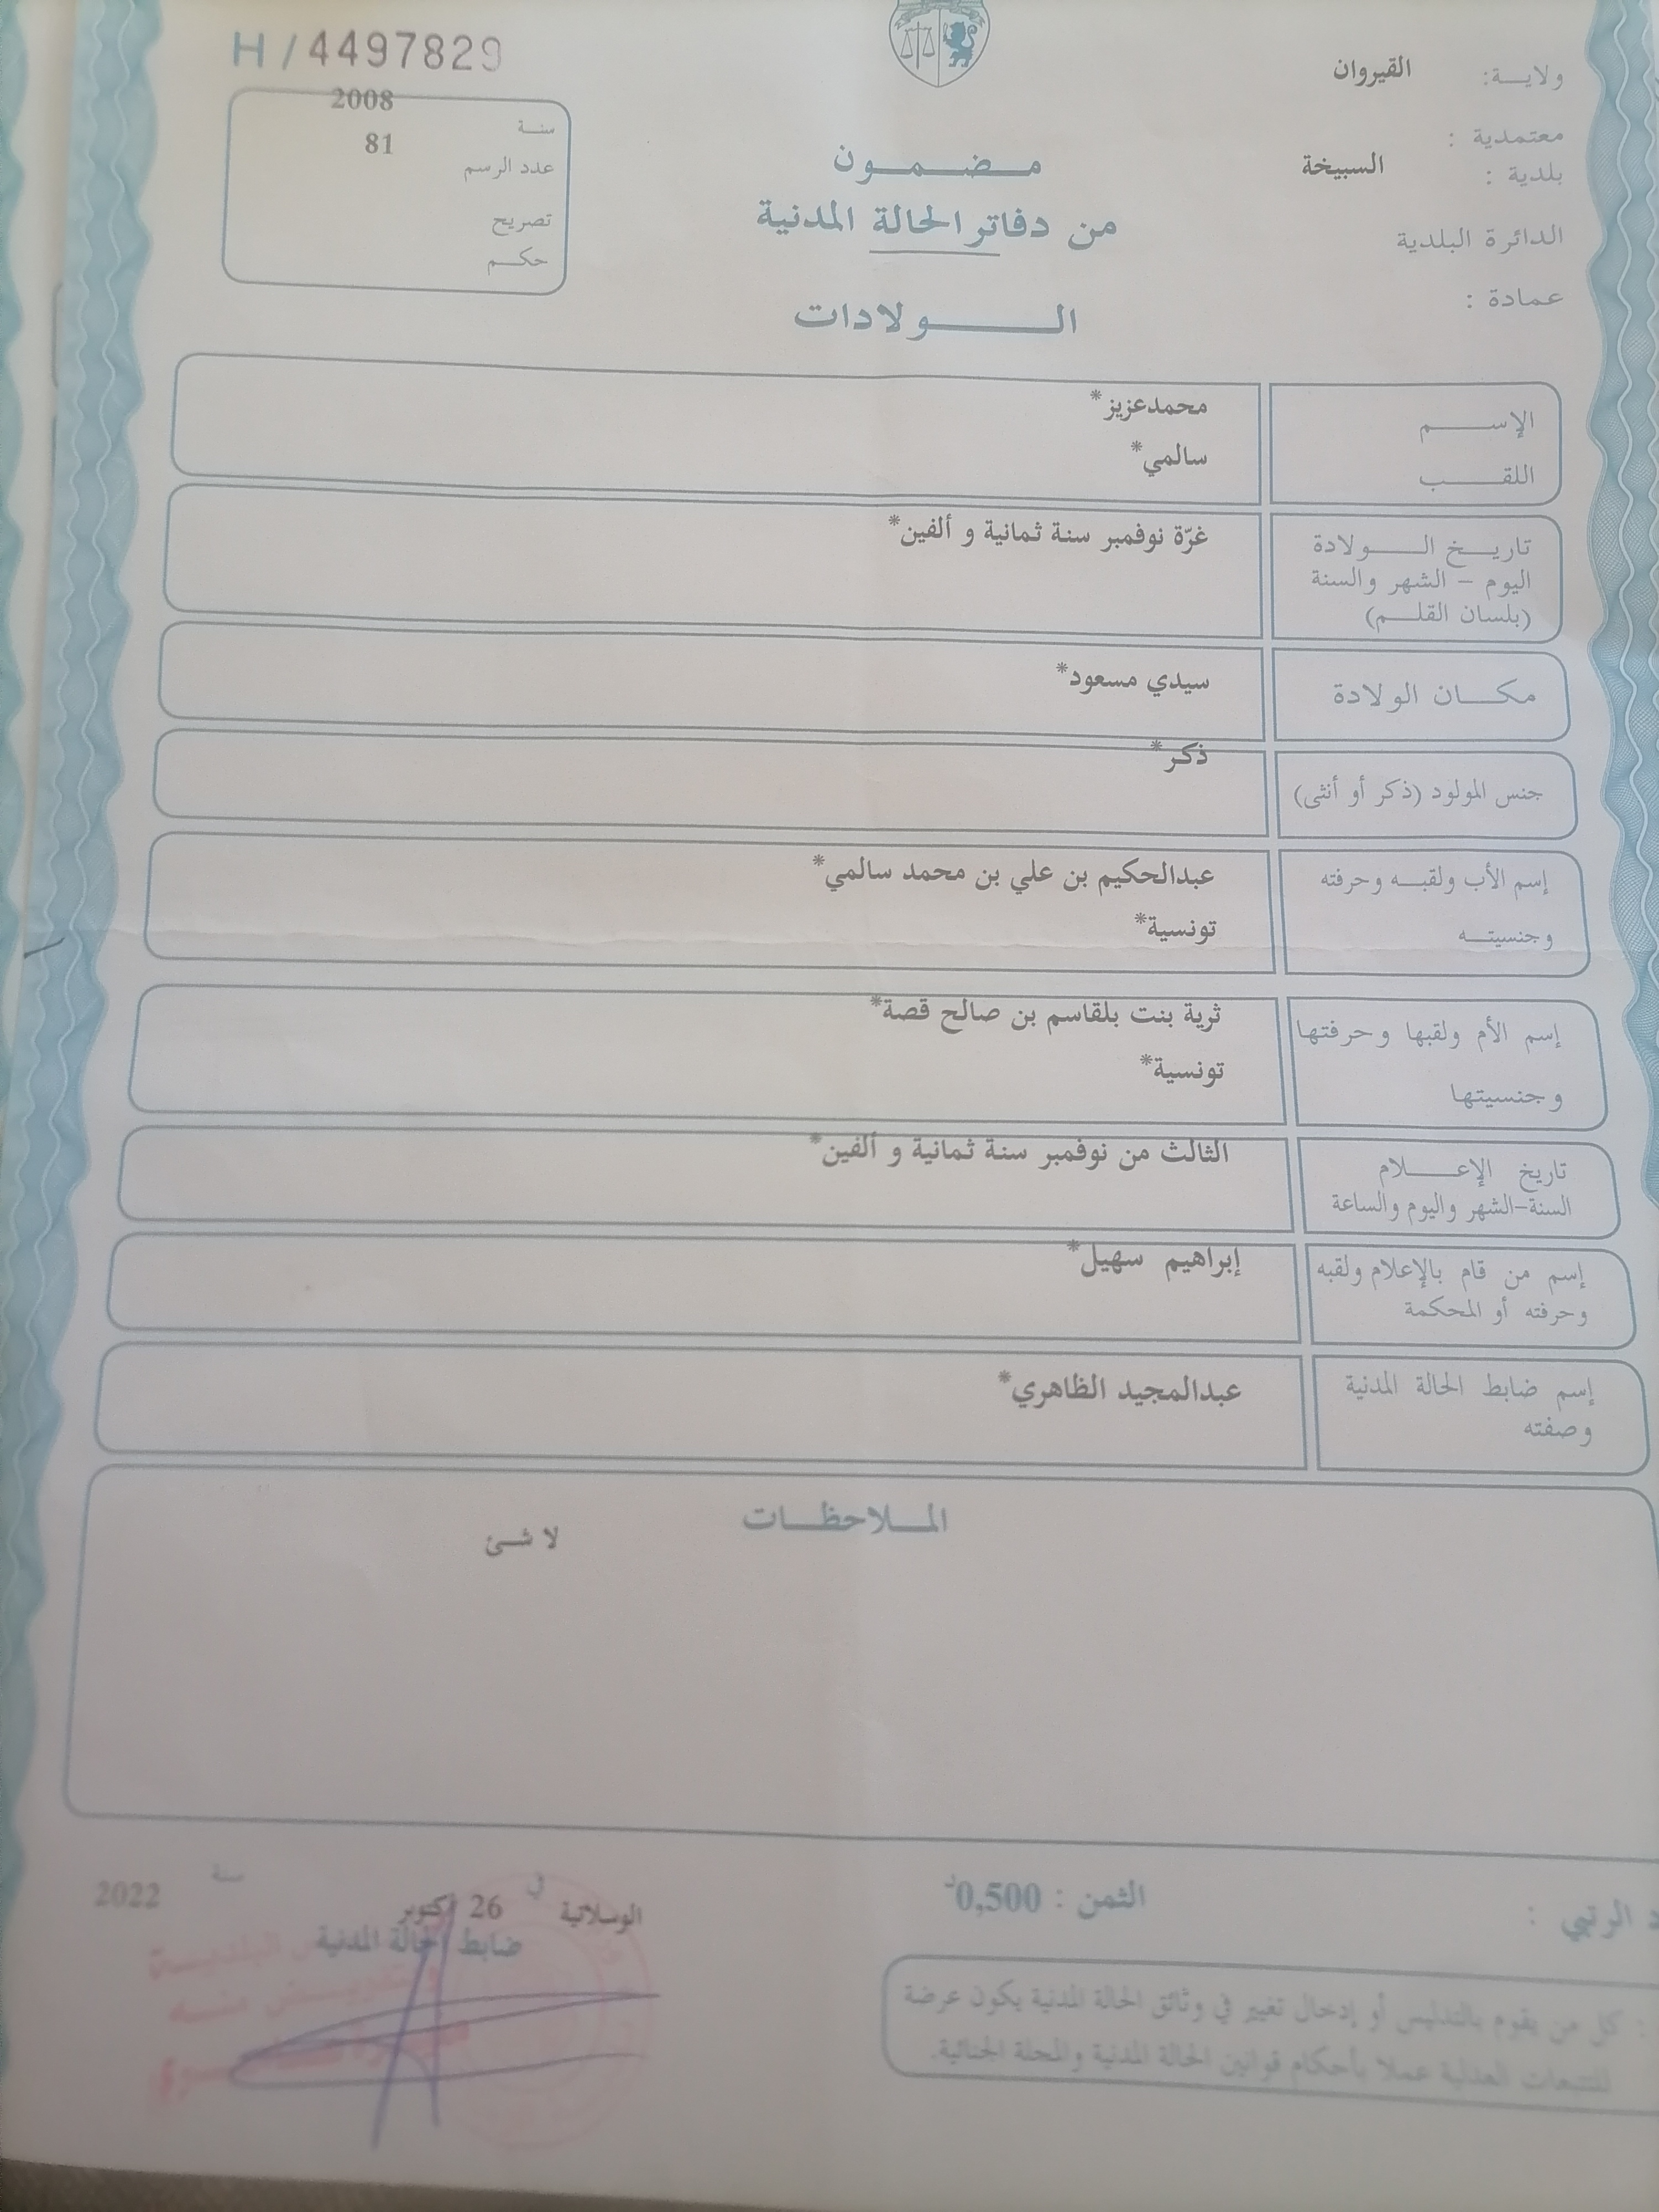 H / 4497829
ولايـــة: القيروان
معتمدية :
بلدية : السبيخة
الدائرة البلدية
عمادة :
2008
سنـة
81
عدد الرسم
تصريح
حكـــم
مــضـــمـــون
من دفاتر الحالة المدنية
الـــــــولادات
الإســـــم محمدعزيز*
اللقـــــب سالمي*
تاريــخ الـــــولادة غرّة نوفمبر سنة ثمانية و ألفين*
اليوم – الشهر والسنة
(بلسان القلـــم)
مكـــان الولادة سيدي مسعود*
جنس المولود (ذكر أو أنثى) ذكر*
إسم الأب ولقبـــه وحرفته عبدالحكيم بن علي بن محمد سالمي*
وجنسيتـــه تونسية*
إسم الأم ولقبها وحرفتها ثرية بنت بلقاسم بن صالح قصة*
وجنسيتها تونسية*
تاريخ الإعـــــلام الثالث من نوفمبر سنة ثمانية و ألفين*
السنة-الشهر واليوم والساعة
إسم من قام بالإعلام ولقبه إبراهيم سهيل*
وحرفته أو المحكمة
إسم ضابط الحالة المدنية عبدالمجيد الظاهري*
وصفته
المـــلاحظـــات
لا شئ
د الرتبي :
الثمن : 0,500د
الوسلاتية في 26 أكتوبر سنة 2022
ضابط الحالة المدنية
: كل من يقوم بالتدليس أو إدخال تغيير في وثائق الحالة المدنية يكون عرضة
للتتبعات العدلية عملا بأحكام قوانين الحالة المدنية والمجلة الجنائية.